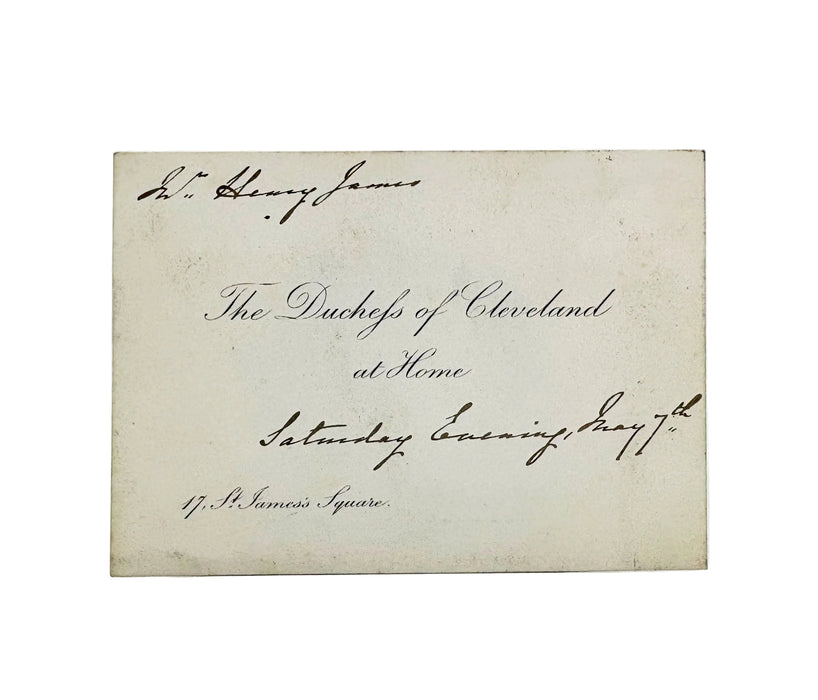 Mr. Henry James
The Ducheſs of Cleveland
at Home
Saturday Evening, May 7th
17, St. James's Square.